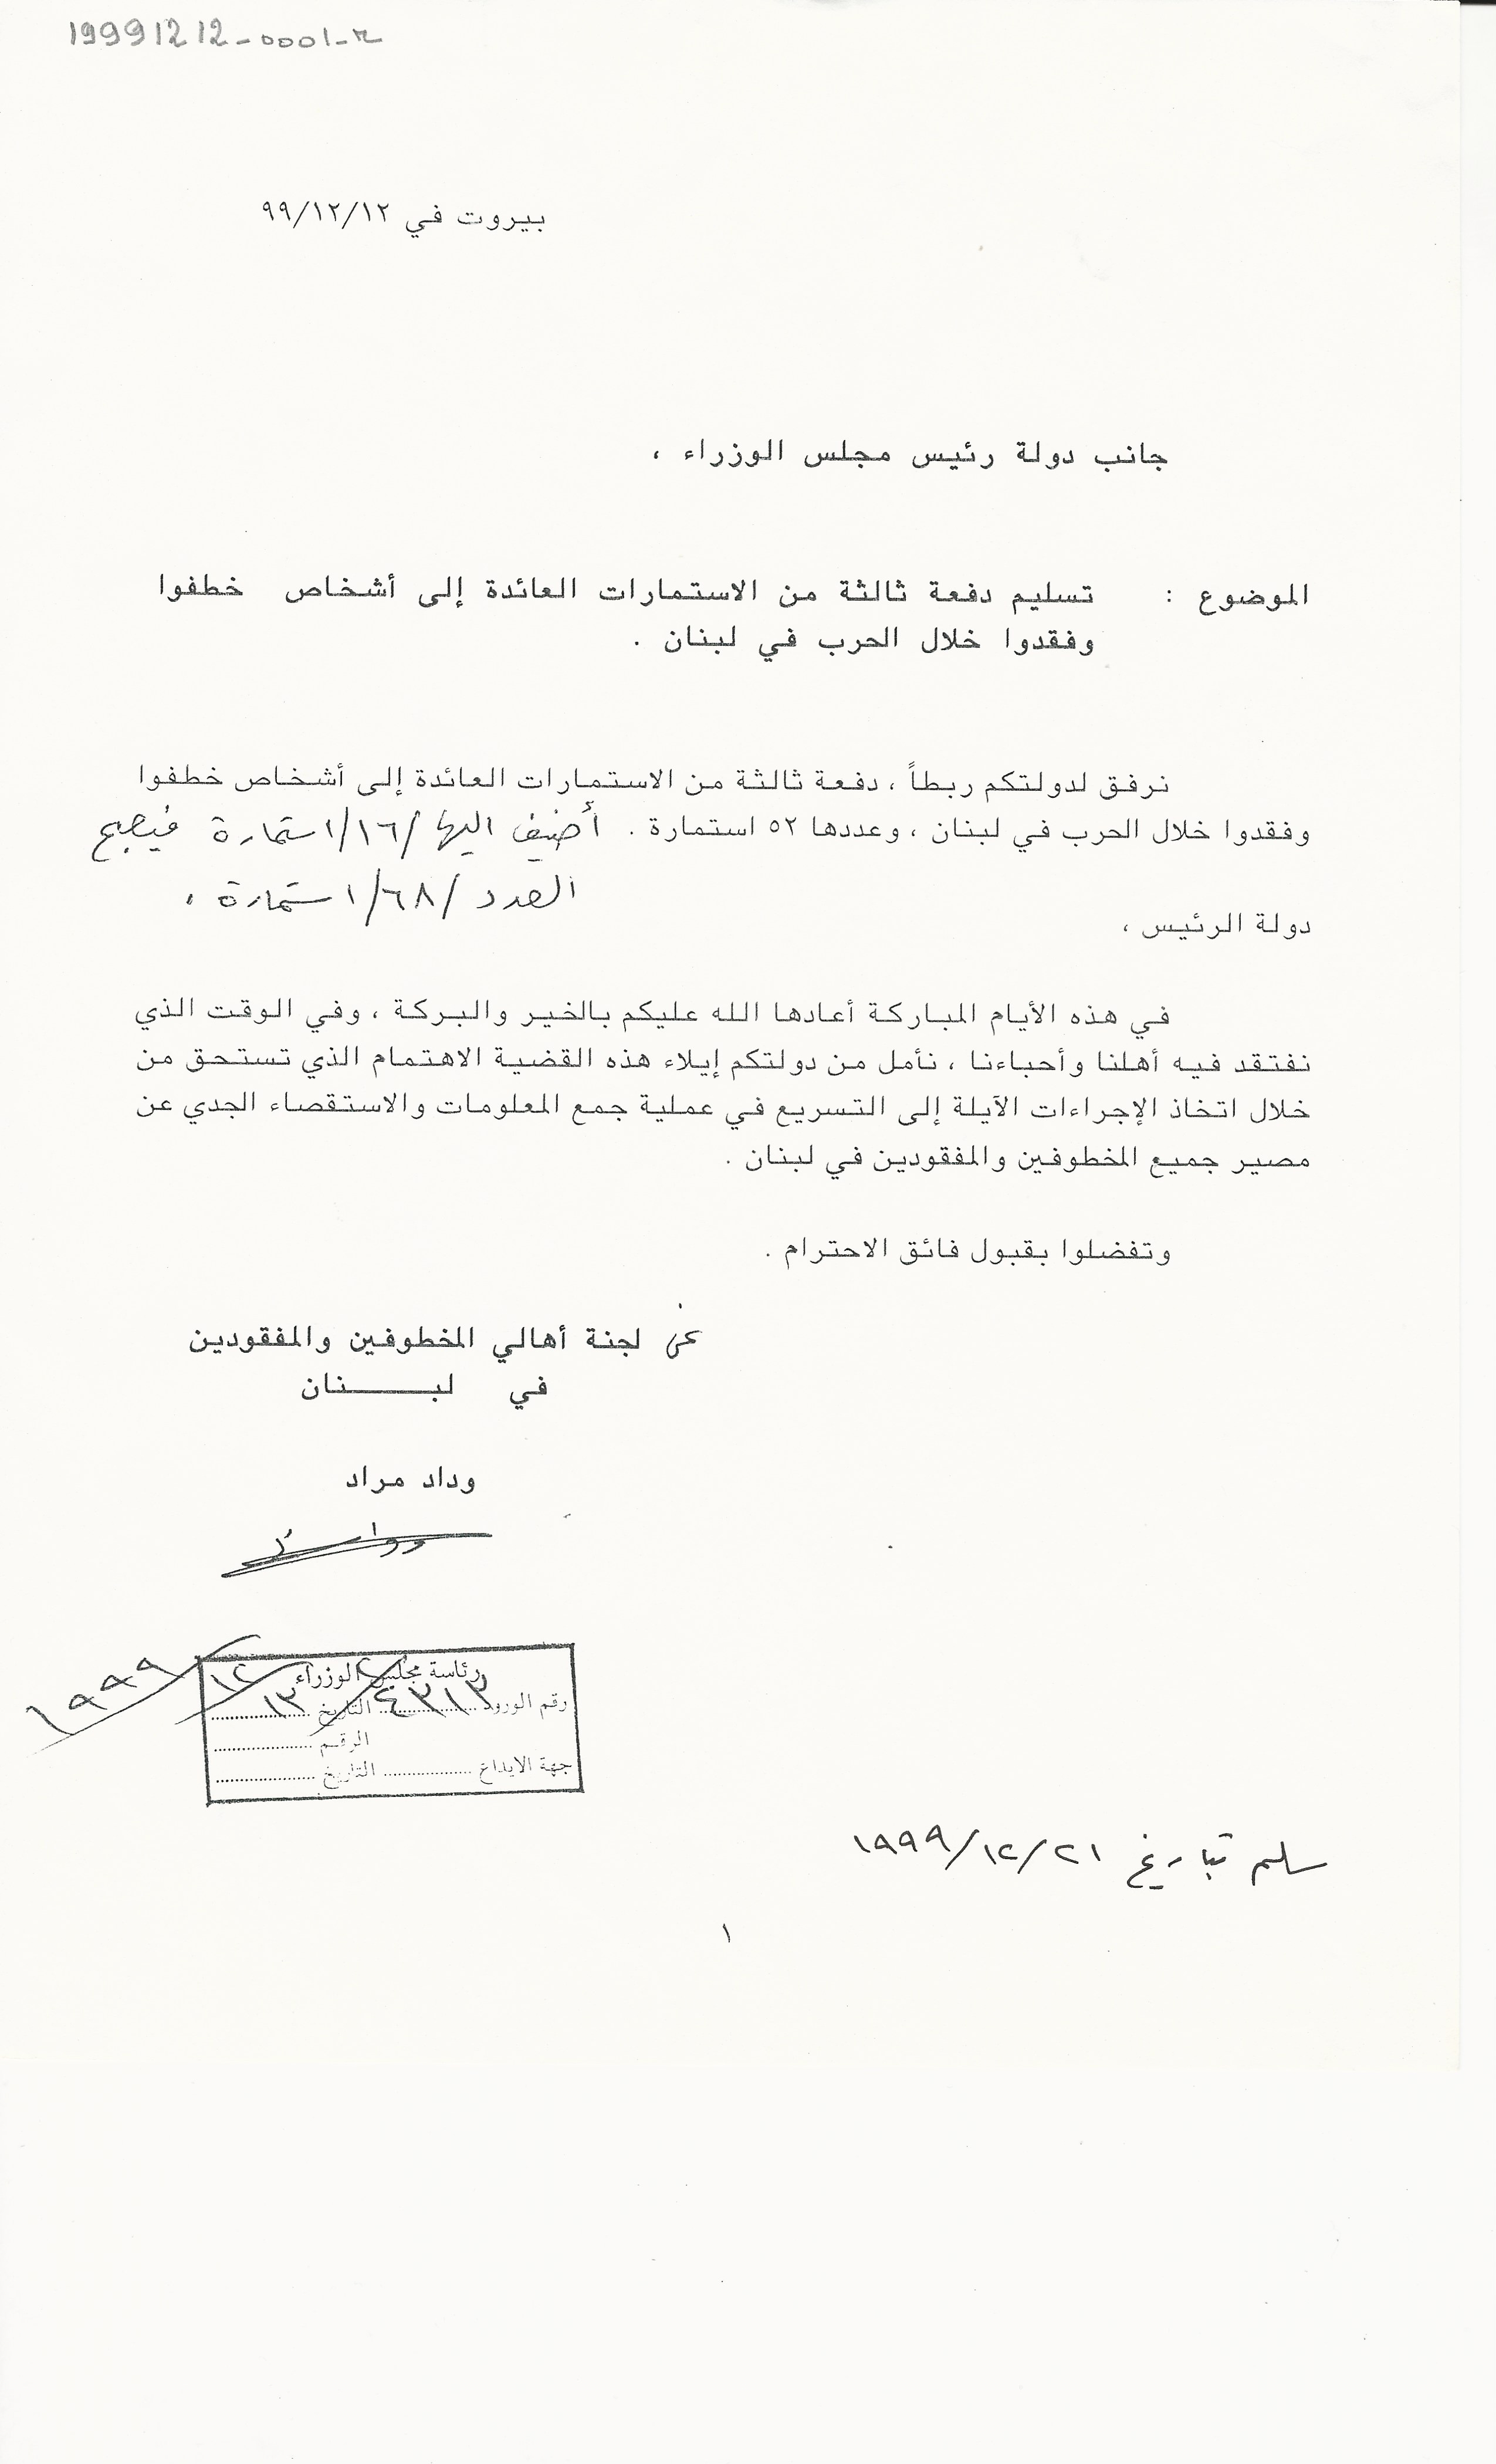 19991212-0001-
بيروت في ٩٩/١٢/١٢
جانب دولة رئيس مجلس الوزراء ،
الموضوع : تسليم دفعة ثالثة من الاستمارات العائدة إلى أشخاص خطفوا
وفقدوا خلال الحرب في لبنان .
نرفق لدولتكم ربطاً ، دفعة ثالثة من الاستمارات العائدة إلى أشخاص خطفوا
وفقدوا خلال الحرب في لبنان ، وعددها ٥٢ استمارة . أضيف اليها /١٦/ استمارة فيصبح
العدد /٦٨/ استمارة .
دولة الرئيس ،
في هذه الأيام المباركة أعادها الله عليكم بالخير والبركة ، وفي الوقت الذي
نفتقد فيه أهلنا وأحباءنا ، نأمل من دولتكم إيلاء هذه القضية الاهتمام الذي تستحق من
خلال اتخاذ الإجراءات الآيلة إلى التسريع في عملية جمع المعلومات والاستقصاء الجدي عن
مصير جميع المخطوفين والمفقودين في لبنان .
وتفضلوا بقبول فائق الاحترام .
عن لجنة أهالي المخطوفين والمفقودين
في لبـــــنان
وداد مراد
رئاسة مجلس الوزراء
رقم الورود ........ التاريخ ........
الرقم ........
جهة الايداع ........ التاريخ ........
سلم بتاريخ ١٩٩٩/١٢/٢١
١